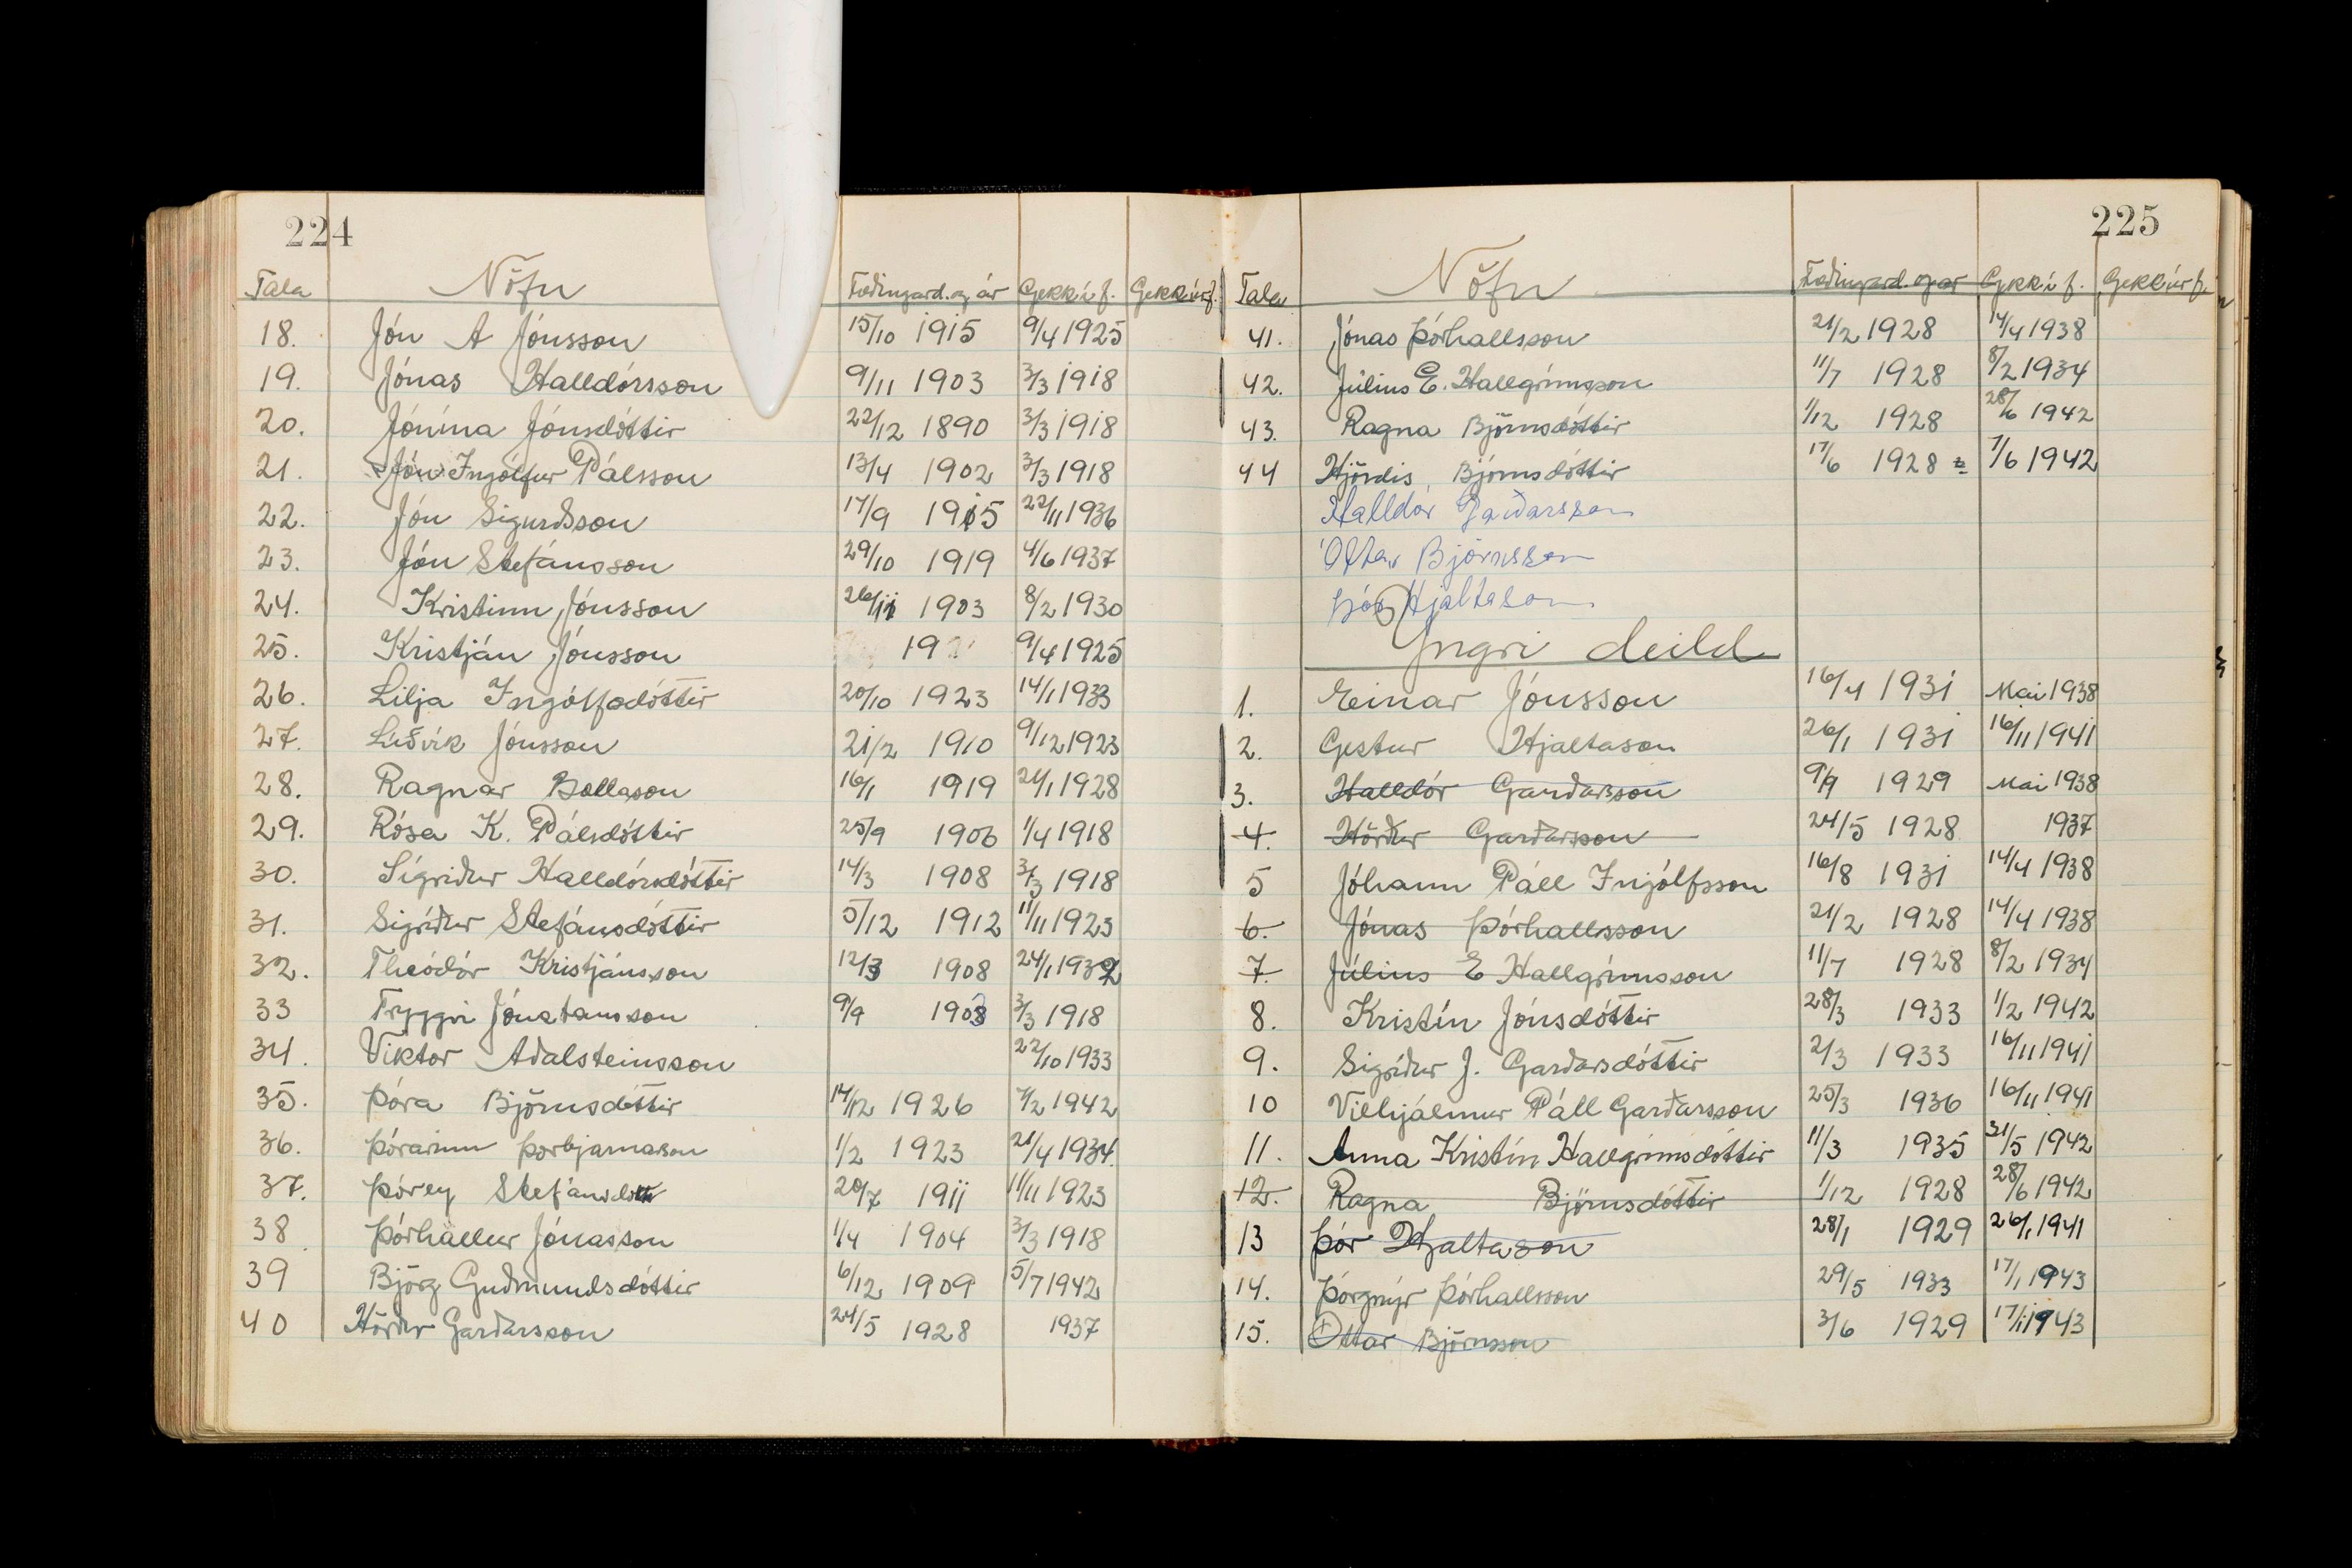 224
Tala Nöfn Fæðingard. og ár Gekk í f. Gekk úr f.
18. Jón A Jónsson 15/10 1915 9/4 1925
19. Jónas Halldórsson 9/11 1903 3/3 1918
20. Jónína Jónsdóttir 22/12 1890 3/3 1918
21. Jón Ingólfur Pálsson 13/4 1902 3/3 1918
22. Jón Sigurðsson 17/9 1915 22/11 1936
23. Jón Stefánsson 29/10 1919 4/6 1937
24. Kristinn Jónsson 26/11 1903 8/2 1930
25. Kristján Jónsson 19 9/4 1925
26. Lilja Ingólfsdóttir 20/10 1923 14/1 1933
27. Lúðvík Jónsson 21/2 1910 9/12 1923
28. Ragnar Bollason 16/1 1919 24/1 1928
29. Rósa K. Pálsdóttir 25/9 1906 1/4 1918
30. Sígriður Halldórsdóttir 14/3 1908 3/3 1918
31. Sigríður Stefánsdóttir 5/12 1912 11/11 1923
32. Theódór Kristjánsson 12/3 1908 24/1 1932
33 Tryggvi Jónatansson 9/9 1903 3/3 1918
34. Viktor Aðalsteinsson 22/10 1933
35. Þóra Björnsdóttir 14/12 1926 7/2 1942
36. Þórarinn Þorbjarnarson 1/2 1923 21/4 1934.
37. Þórey Stefánsdótt 20/7 1911 11/11 1923
38 Þórhallur Jónasson 1/4 1904 3/3 1918
39 Björg Guðmundsdóttir 6/12 1909 5/7 1942
40 Hörður Garðarsson 24/5 1928 1937
225
Tala Nöfn Fæðingard. og ár Gekk í f. Gekk úr f.
41. Jónas Þórhallsson 21/2 1928 14/4 1938
42. Júlíus E. Hallgrímsson 11/7 1928 8/2 1934
43. Ragna Björnsdóttir 1/12 1928 28/6 1942
44 Hjördis, Björnsdóttir 17/6 1928 7/6 1942
Halldór Garðarsson
Óttar Björnsson
Þór Hjaltason
Yngri deild
1. Einar Jónsson 16/4 1931 Mai 1938
2. Gestur Hjaltason 26/1 1931 16/11 1941
3. Halldór Garðarsson 9/9 1929 Mai 1938
4. Hörður Garðarsson 24/5 1928 1937
5 Jóhann Páll Ingólfsson 16/8 1931 14/4 1938
6. Jónas Þórhallsson 21/2 1928 14/4 1938
7. Júlíus E Hallgrímsson 11/7 1928 8/2 1934
8. Kristín Jónsdóttir 28/3 1933 1/2 1942
9. Sigríður J. Garðarsdóttir 2/3 1933 16/11 1941
10 Vilhjálmur Páll Garðarsson 25/3 1936 16/11 1941
11. Anna Kristín Hallgrímsdóttir 11/3 1935 31/5 1942
12. Ragna Björnsdóttir 1/12 1928 28/6 1942
13 Þór Hjaltason 28/1 1929 26/1 1941
14. Þórgnýr Þórhallsson 29/5 1933 17/1 1943
15. Óttar Björnsson 3/6 1929 17/1 1943